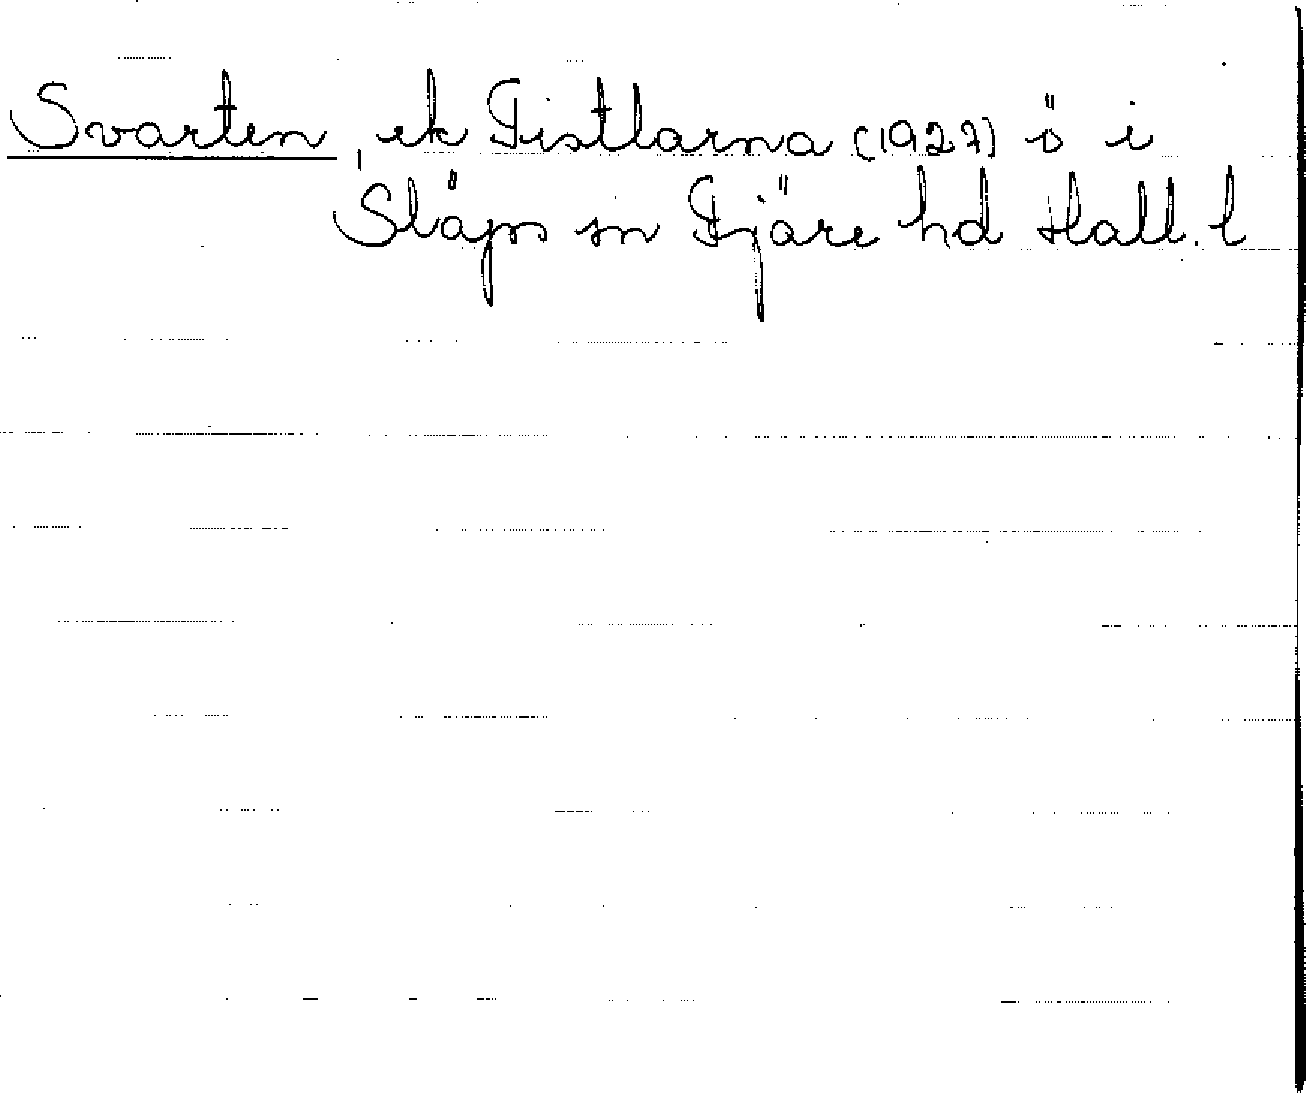 Svarten, ek Tistlarna (1927) ö i
Släps sn Fjäre hd Hall. l